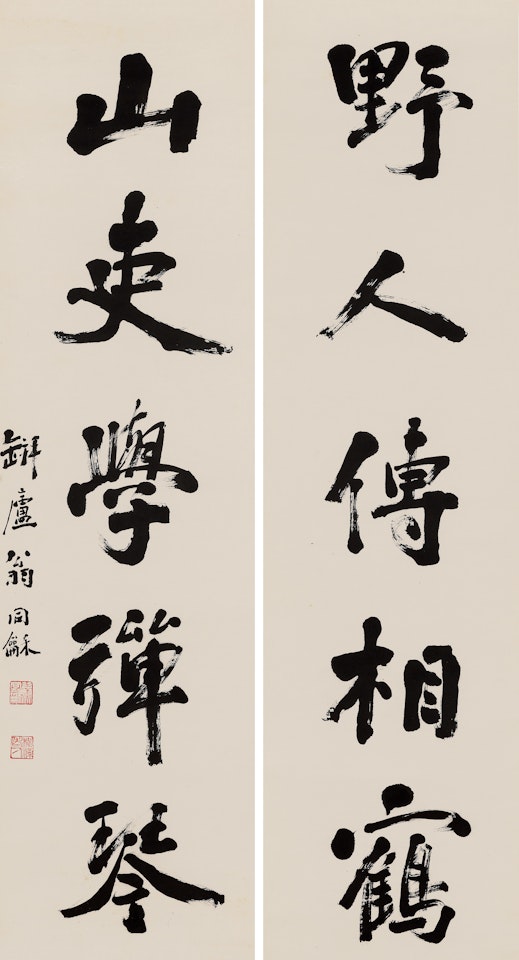 野人傳相鶴
山吏學彈琴
缾廬翁同龢